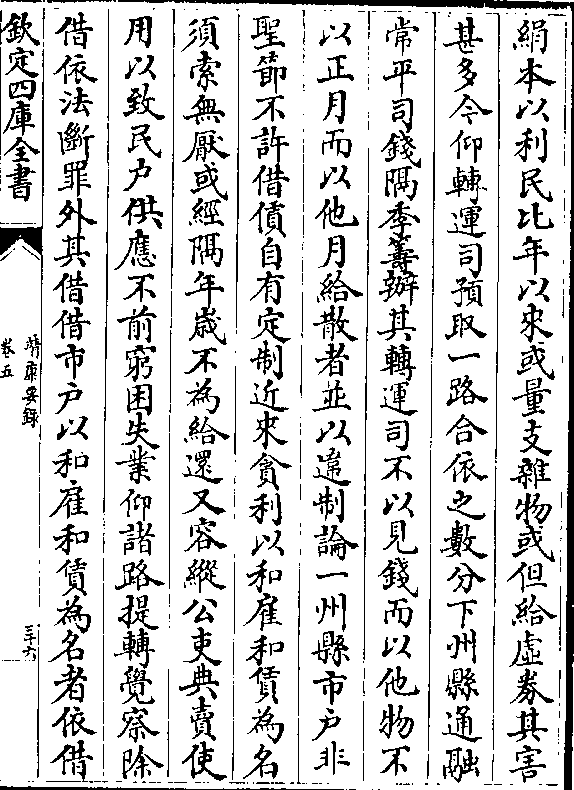 絹本以利民比年以來或量支雜物或但給虛券其害
甚多今仰轉運司預取一路合依之數分下州縣通融
常平司錢隔季籌辦其轉運司不以見錢而以他物不
以正月而以他月給散者並以違制論一州縣市户非
聖節不許借債自有定制近來貪利以和雇和賃為名
須索無厭或經隔年歲不為給還又容縱公吏典賣使
用以致民户供應不前窮困失業仰諸路提轉覺察除
借依法斷罪外其借借市户以和雇和賃為名者依借
欽定四庫全書
靖康要錄
卷五
三十六